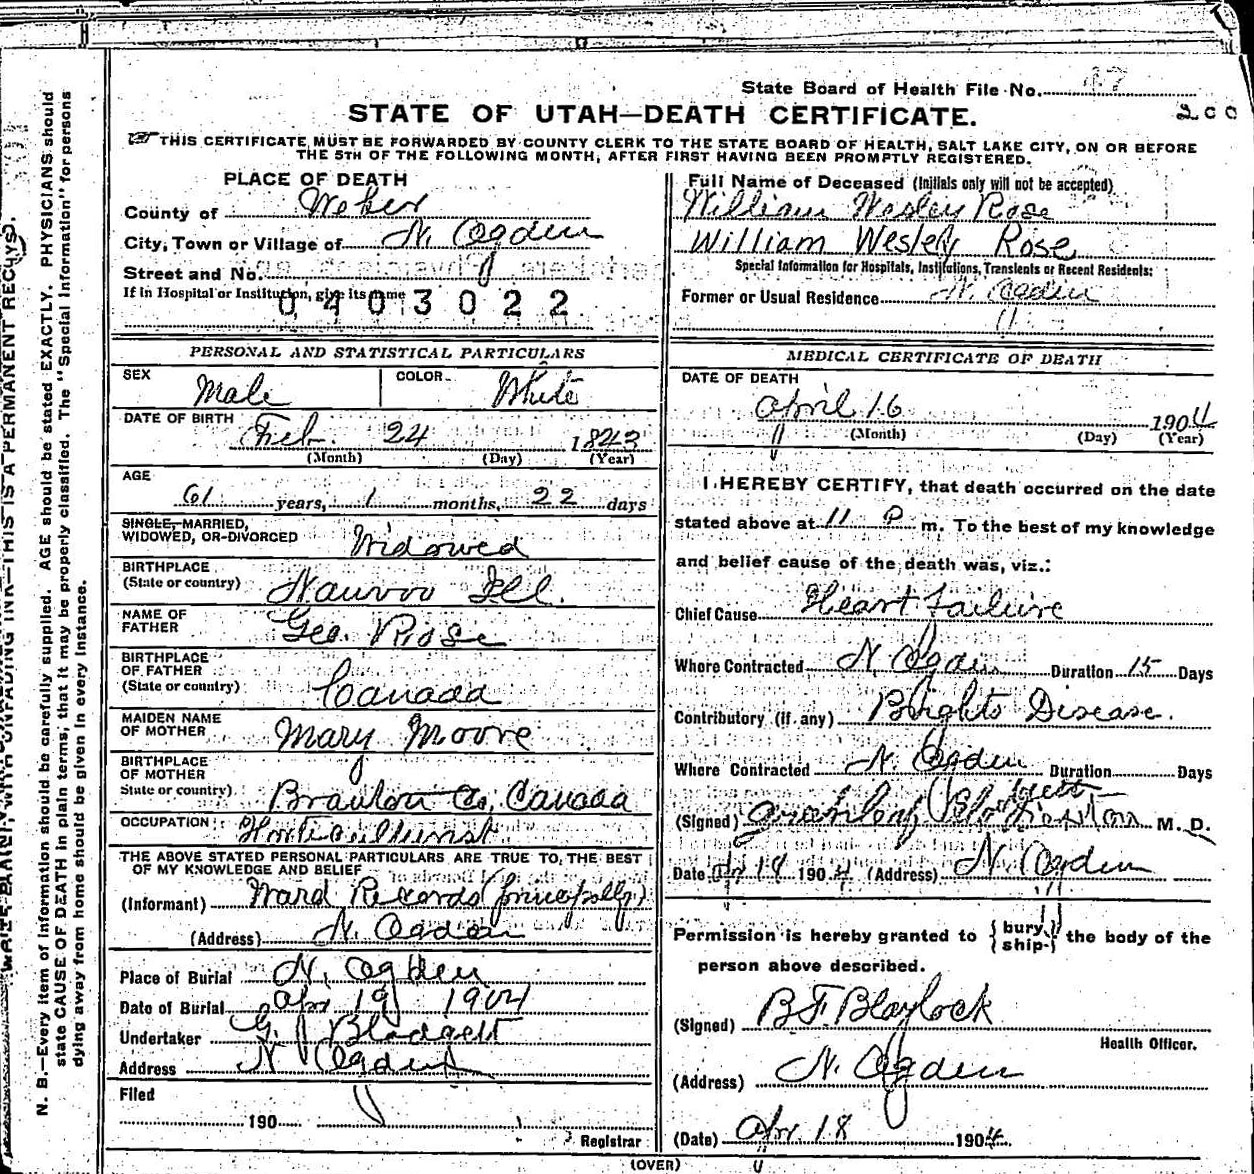 State Board of Health File No. 47
200
STATE OF UTAH—DEATH CERTIFICATE.
THIS CERTIFICATE MUST BE FORWARDED BY COUNTY CLERK TO THE STATE BOARD OF HEALTH, SALT LAKE CITY, ON OR BEFORE
THE 5TH OF THE FOLLOWING MONTH, AFTER FIRST HAVING BEEN PROMPTLY REGISTERED.
PLACE OF DEATH
County of Weber
City, Town or Village of N. Ogden
Street and No.
If in Hospital or Institution, give its name
0403022
Full Name of Deceased (Initials only will not be accepted)
William Wesley Rose
William Wesley Rose
Special Information for Hospitals, Institutions, Transients or Recent Residents:
Former or Usual Residence N. Ogden
PERSONAL AND STATISTICAL PARTICULARS
SEX Male COLOR White
DATE OF BIRTH Feb. 24 1843
(Month) (Day) (Year)
AGE
61 years, 1 months, 22 days
SINGLE, MARRIED,
WIDOWED, OR DIVORCED Widowed
BIRTHPLACE
(State or country) Nauvoo Ill.
NAME OF
FATHER Geo. Rose
BIRTHPLACE
OF FATHER
(State or country) Canada
MAIDEN NAME
OF MOTHER Mary Moore
BIRTHPLACE
OF MOTHER
State or country) Co, Canada
OCCUPATION Horticulturist
THE ABOVE STATED PERSONAL PARTICULARS ARE TRUE TO THE BEST
OF MY KNOWLEDGE AND BELIEF
(Informant) Ward Records (principally)
(Address) N. Ogden
Place of Burial N. Ogden
Date of Burial Apr 19 1904
Undertaker G. Blodgett
Address N Ogden
Filed
190
Registrar
MEDICAL CERTIFICATE OF DEATH
DATE OF DEATH
April 16 1904
(Month) (Day) (Year)
I HEREBY CERTIFY, that death occurred on the date
stated above at 11 P m. To the best of my knowledge
and belief cause of the death was, viz.:
Chief Cause Heart Failure
Where Contracted N. Ogden Duration 15 Days
Contributory (if any) Brights Disease.
Where Contracted N. Ogden Duration Days
(Signed) M. D.
Date Apr 18 1904 (Address) N. Ogden
Permission is hereby granted to { bury ship } the body of the
person above described.
(Signed) B F. Blaylock
Health Officer.
(Address) N. Ogden
(Date) Apr 18 1904.
(OVER)
N. B.—Every item of information should be carefully supplied. AGE should be stated EXACTLY. PHYSICIANS should
state CAUSE OF DEATH in plain terms, that it may be properly classified. The "Special Information" for persons
dying away from home should be given in every instance.
WRITE PLAINLY, WITH UNFADING INK—THIS IS A PERMANENT RECORD.